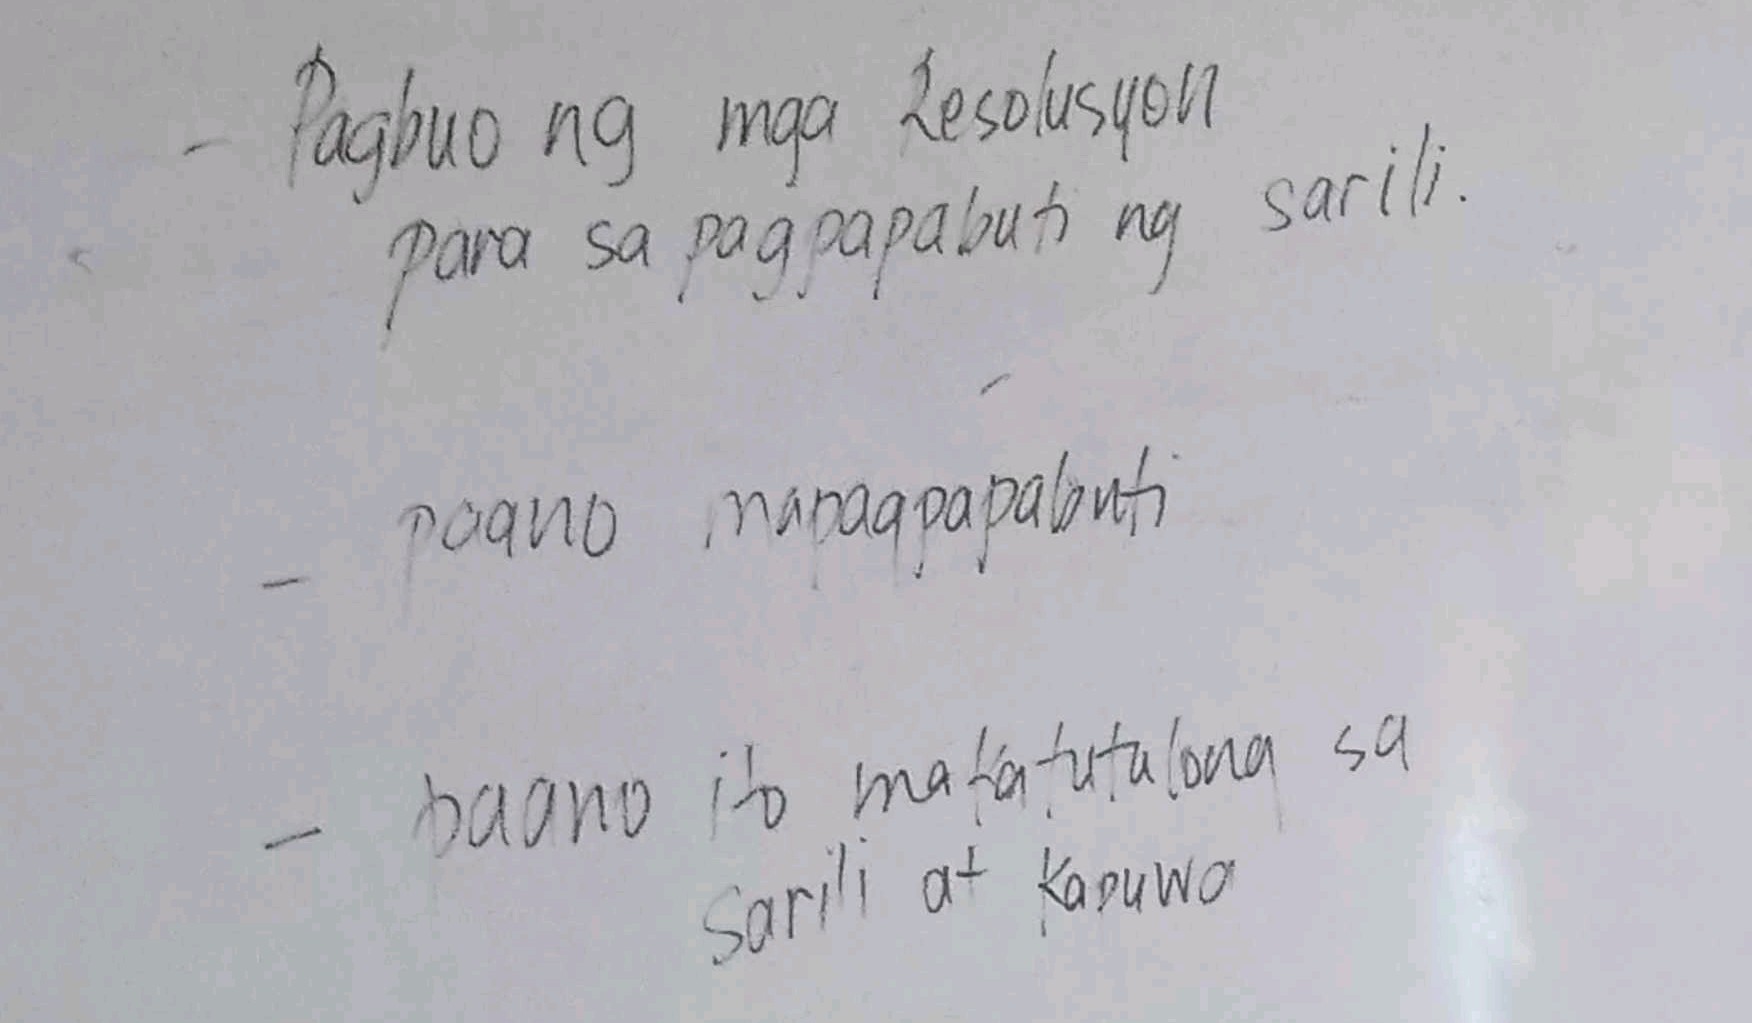 - Pagbuo ng mga Resolusyon
para sa pagpapabuti ng sarili.
- paano mapagpapabuti
- paano ito makatutulong sa
sarili at kapuwa